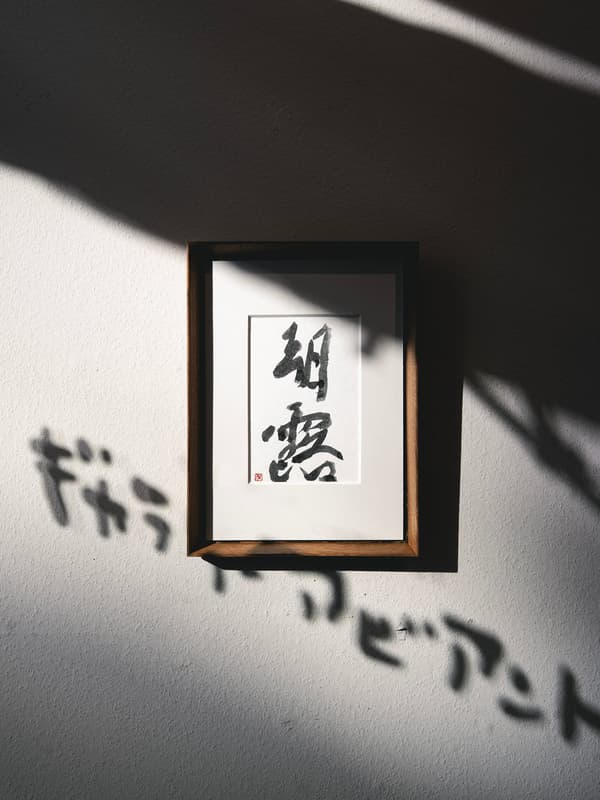 朝露
ギャラ
ビアント